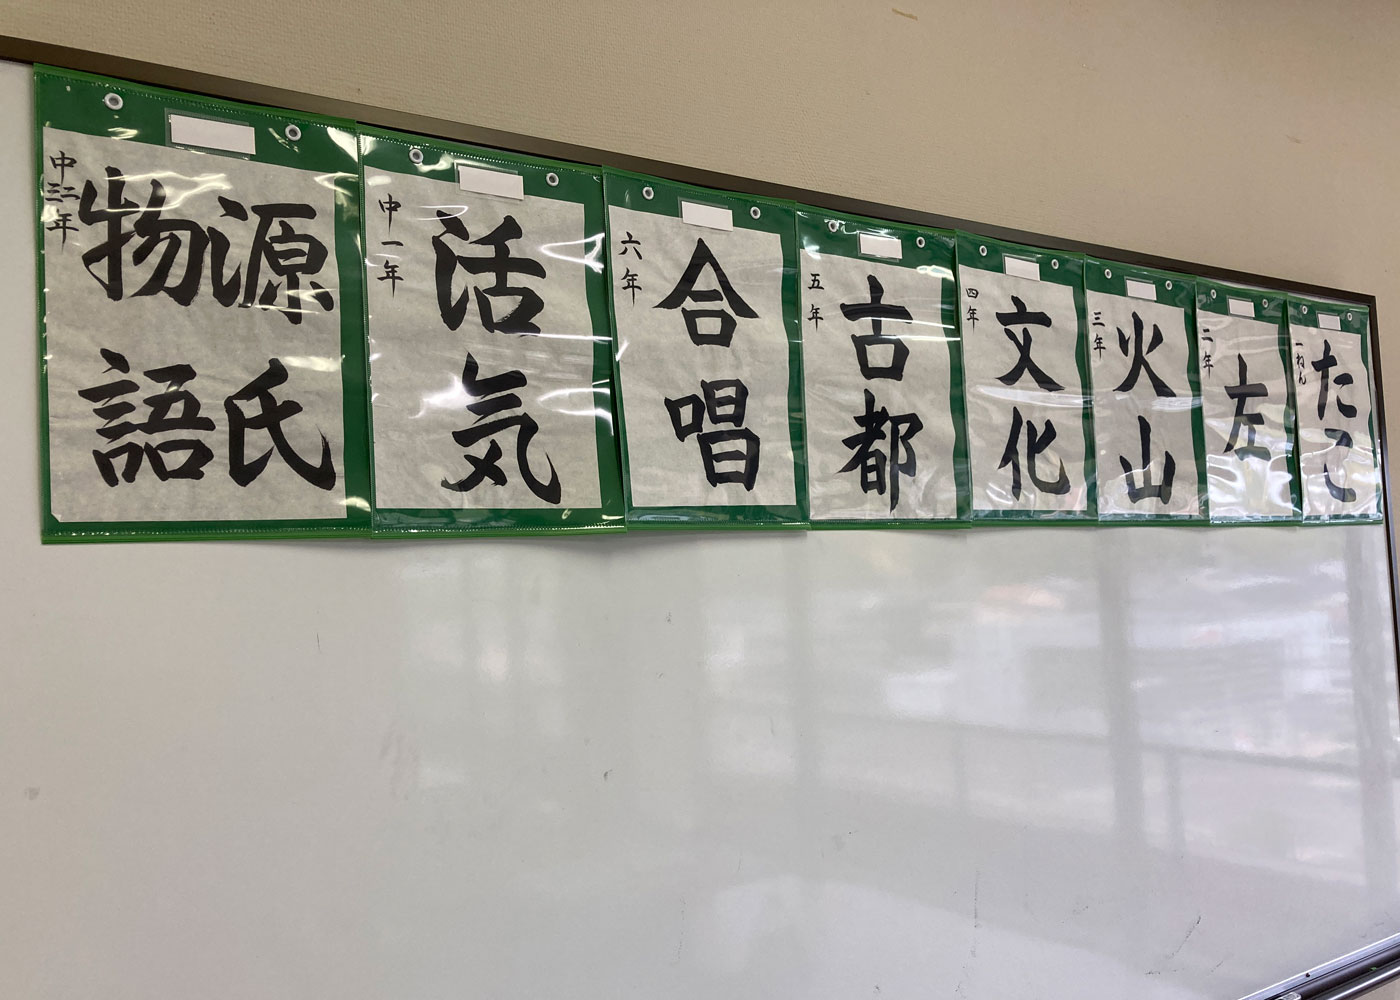 たこ
一ねん
左
二年
火山
三年
文化
四年
古都
五年
合唱
六年
活気
中一年
源氏
物語
中二三年